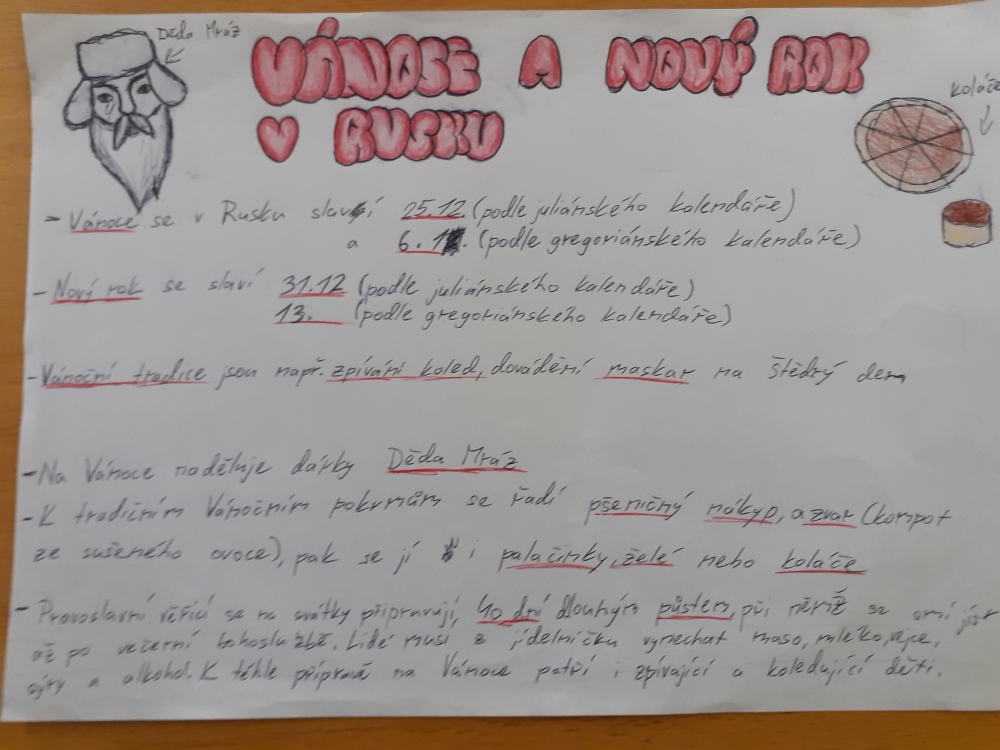 Děda Mráz
VÁNOCE A NOVÝ ROK
V RUSKU
koláče
- Vánoce se v Rusku slaví 25.12 (podle juliánského kalendáře)
a 6.1. (podle gregoriánského kalendáře)
- Nový rok se slaví 31.12 (podle juliánského kalendáře)
13. (podle gregoriánského kalendáře)
- Vánoční tradice jsou např. zpívání koled, dovádění maskar na štědrý den
- Na Vánoce naděluje dárky Děda Mráz
- K tradičním Vánočním pokrmům se řadí pšeničný nákyp, a zvar (kompot
ze sušeného ovoce), pak se jí i palačinky, želé nebo koláče
- Pravoslavní věřící se na svátky připravují, 40 dní dlouhým půstem, při němž se smí jíst
až po večerní bohoslužbě. Lidé musí z jídelníčku vynechat maso, mléko, vejce,
sýry a alkohol. K téhle přípravě na Vánoce patří i zpívající a koledující děti.